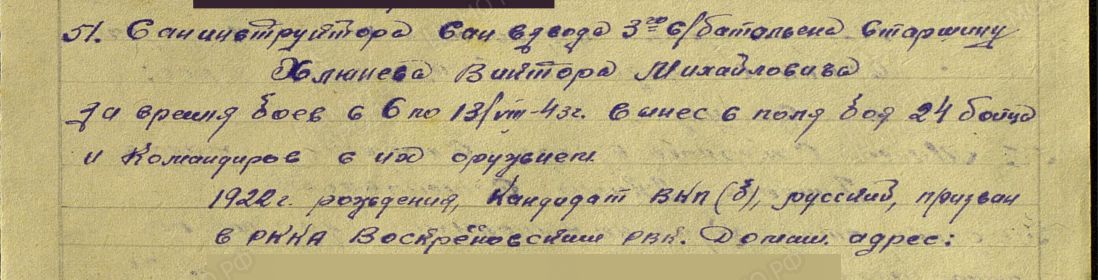 51. Санинструктора сан взвода 3го с/батальона старшину
Клюнева Виктора Михайловича
за время боев с 6 по 13/VIII-43г. вынес с поля боя 24 бойца
и командиров с их оружием.
1922г. рождения, кандидат ВКП(б), русский, призван
в РККА Воскресенским РВК. Домаш. адрес: